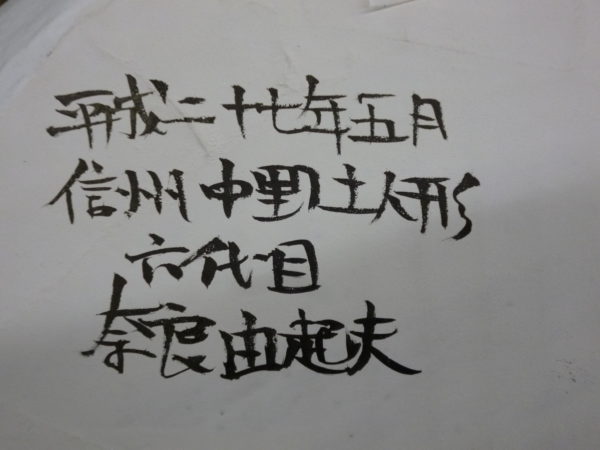 平成二十七年五月
信州中野土人形
六代目
奈良由起夫